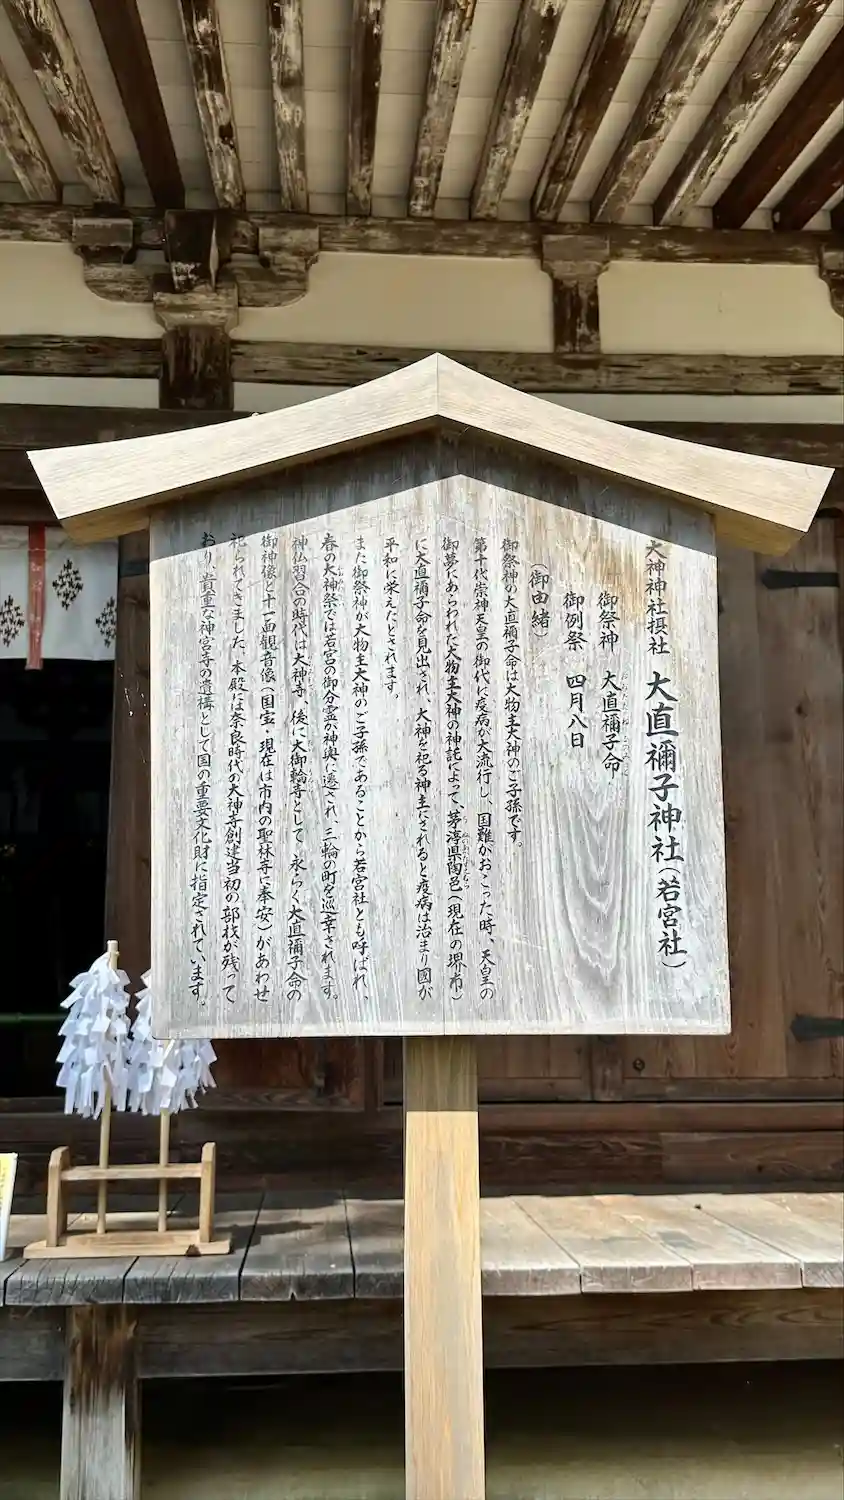 大神神社摂社 大直禰子神社（若宮社）
御祭神 大直禰子命
御例祭 四月八日
（御由緒）
御祭神の大直禰子命は大物主大神のご子孫です。
第十代崇神天皇の御代に疫病が大流行し、国難がおこった時、天皇の
御夢にあらわれた大物主大神の神託によって、茅渟県陶邑（現在の堺市）
に大直禰子命を見出され、大神を祀る神主にされると疫病は治まり國が
平和に栄えたとされます。
また御祭神が大物主大神のご子孫であることから若宮社とも呼ばれ、
春の大神祭では若宮の御分霊が神輿に遷され、三輪の町を巡幸されます。
神仏習合の時代は大神寺、後に大御輪寺として永らく大直禰子命の
御神像と十一面観音像（国宝・現在は市内の聖林寺に奉安）があわせ
祀られてきました。本殿は奈良時代の大神寺創建当初の部材が残って
おり、貴重な神宮寺の遺構として国の重要文化財に指定されています。